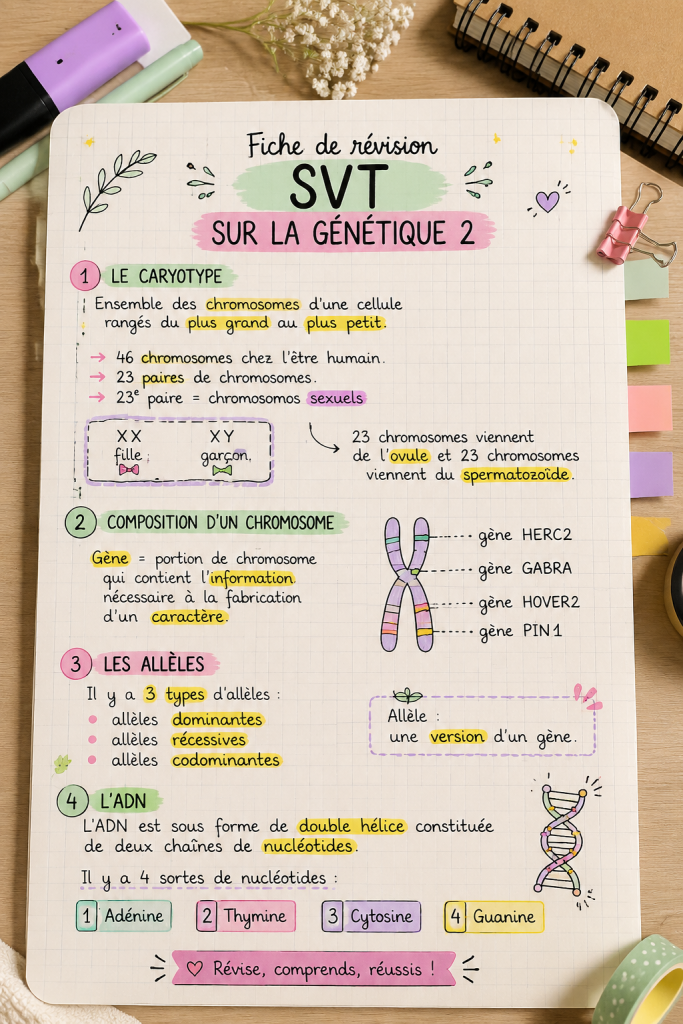 Fiche de révision
SVT
SUR LA GÉNÉTIQUE 2
1 LE CARYOTYPE
Ensemble des chromosomes d'une cellule
rangés du plus grand au plus petit.
→ 46 chromosomes chez l'être humain.
→ 23 paires de chromosomes.
→ 23e paire = chromosomos sexuels
XX XY
fille : garçon,
23 chromosomes viennent
de l'ovule et 23 chromosomes
viennent du spermatozoïde.
2 COMPOSITION D'UN CHROMOSOME
Gène = portion de chromosome
qui contient l'information
nécessaire à la fabrication
d'un caractère.
gène HERC2
gène GABRA
gène HOVER2
gène PIN1
3 LES ALLÈLES
Il y a 3 types d'allèles :
• allèles dominantes
• allèles récessives
• allèles codominantes
Allèle :
une version d'un gène.
4 L'ADN
L'ADN est sous forme de double hélice constituée
de deux chaînes de nucléotides.
Il y a 4 sortes de nucléotides :
1 Adénine 2 Thymine 3 Cytosine 4 Guanine
♡ Révise, comprends, réussis !